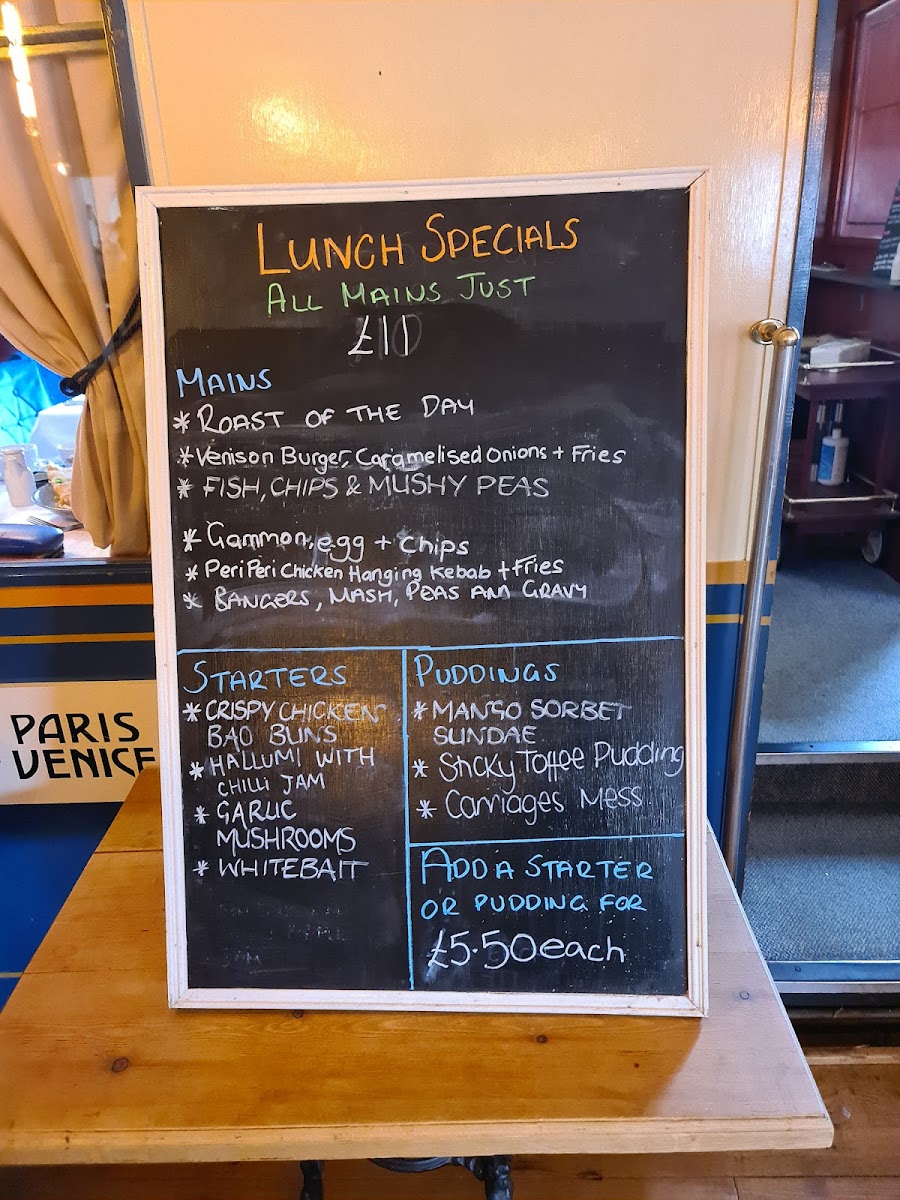 LUNCH SPECIALS
ALL MAINS JUST
£11
MAINS
* ROAST OF THE DAY
* Venison Burger, Caramelised Onions + Fries
* FISH, CHIPS & MUSHY PEAS
* Gammon, egg + chips
* Peri Peri Chicken Hanging Kebab + Fries
* BANGERS, MASH, PEAS AND GRAVY
STARTERS
* CRISPY CHICKEN
BAO BUNS
* HALLUMI WITH
CHILLI JAM
* GARLIC
MUSHROOMS
* WHITEBAIT
PUDDINGS
* MANGO SORBET
SUNDAE
* Sticky Toffee Pudding
* Carriages Mess
ADD A STARTER
OR PUDDING FOR
£5.50 each
PARIS
VENICE